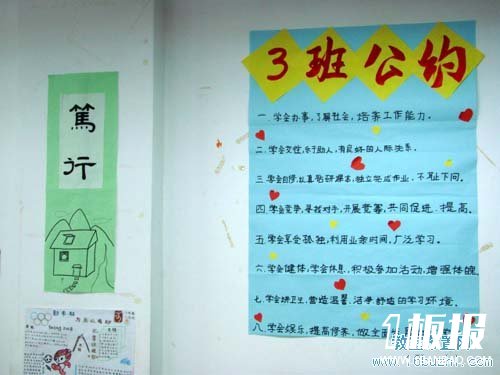 3班公约
一.学会办事,了解社会,培养工作能力。
二.学会交往,乐于助人,有良好的人际关系。
三.学会自修,认真钻研课本,独立完成作业,不耻下问。
四.学会竞争,寻找对手,开展竞赛,共同促进,提高。
五.学会享受孤独,利用业余时间,广泛学习。
六.学会健体,学会休息,积极参加活动,增强体魄
七.学讲卫生,营造温馨,洁净舒适的学习环境。
八.学会娱乐,提高修养,做全面
篤
行
1板报